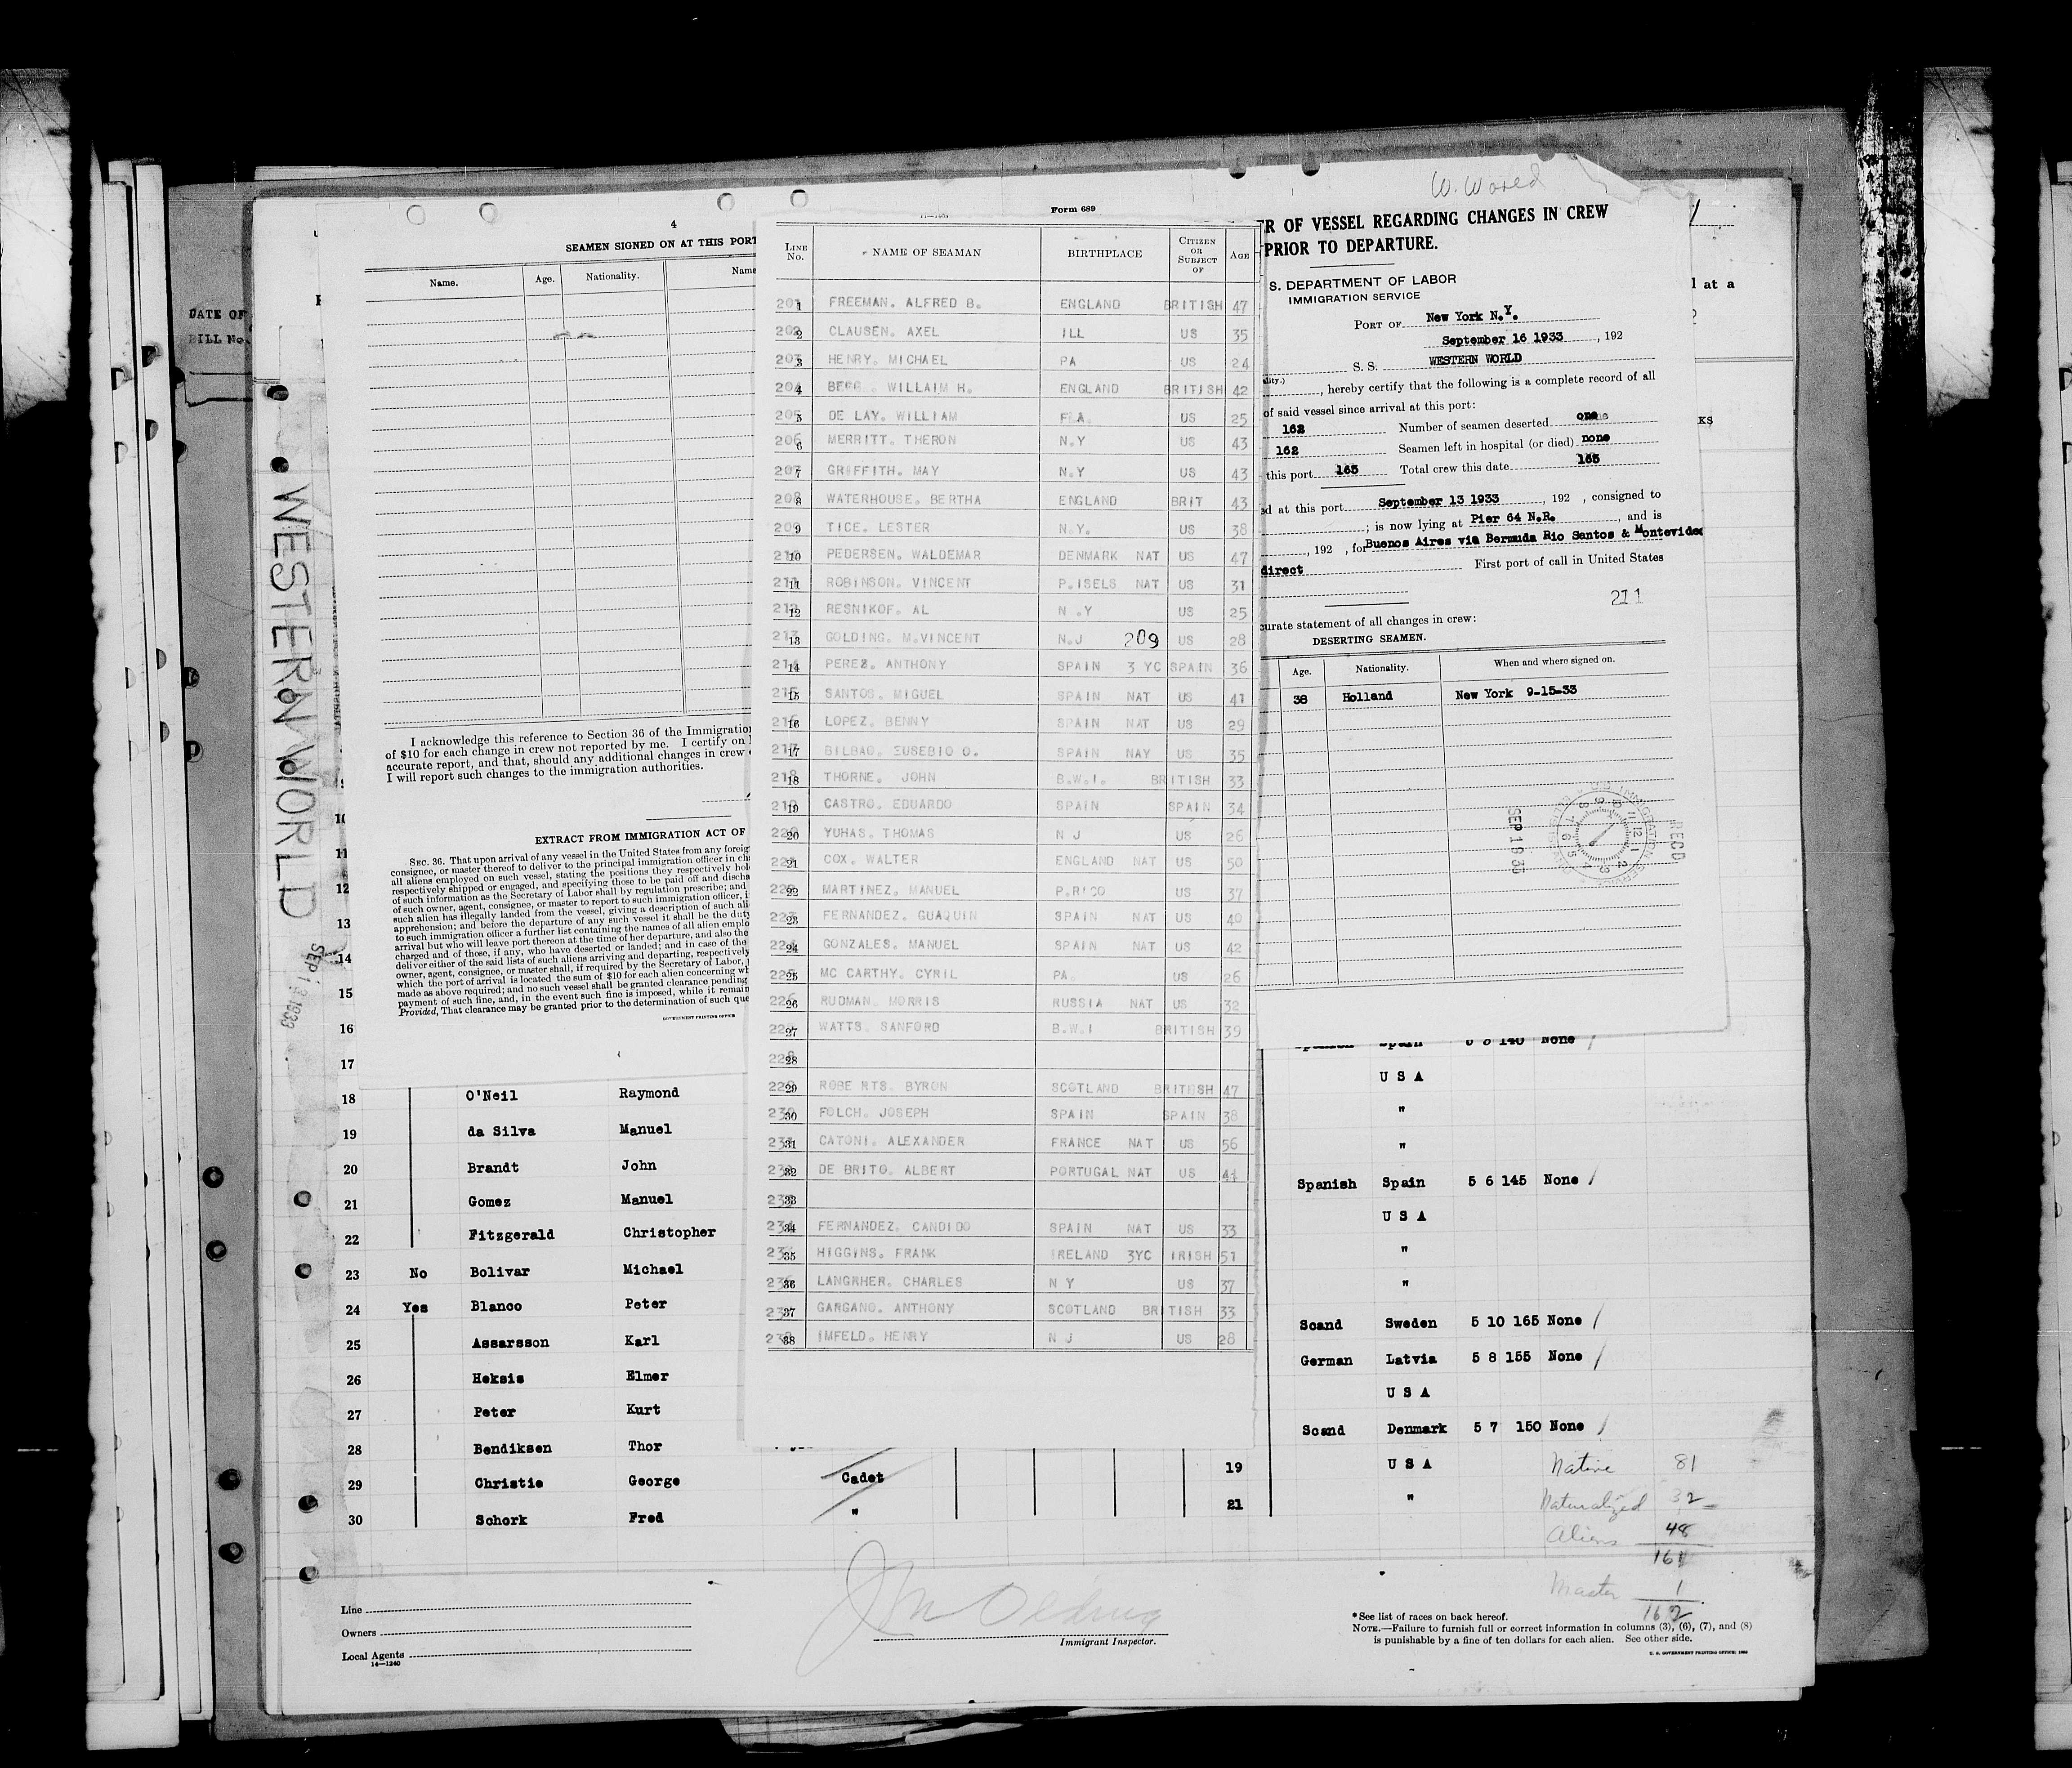 W. World
4
SEAMEN SIGNED ON AT THIS PORT
Name. Age. Nationality. Name
I acknowledge this reference to Section 36 of the Immigration
of $10 for each change in crew not reported by me. I certify on
accurate report, and that, should any additional changes in crew
I will report such changes to the immigration authorities.
EXTRACT FROM IMMIGRATION ACT OF
SEC. 36. That upon arrival of any vessel in the United States from any foreig
consignee, or master thereof to deliver to the principal immigration officer in ch
all aliens employed on such vessel, stating the positions they respectively hol
respectively shipped or engaged, and specifying those to be paid off and discha
of such information as the Secretary of Labor shall by regulation prescribe; and
of such owner, agent, consignee, or master to report to such immigration officer, i
such alien has illegally landed from the vessel, giving a description of such ali
apprehension; and before the departure of any such vessel it shall be the duty
to such immigration officer a further list containing the names of all alien emplo
arrival but who will leave port thereon at the time of her departure, and also the
charged and of those, if any, who have deserted or landed; and in case of the
deliver either of the said lists of such aliens arriving and departing, respectively
owner, agent, consignee, or master shall, if required by the Secretary of Labor,
which the port of arrival is located the sum of $10 for each alien concerning wh
made as above required; and no such vessel shall be granted clearance pending
payment of such fine, and, in the event such fine is imposed, while it remain
Provided, That clearance may be granted prior to the determination of such que
GOVERNMENT PRINTING OFFICE
DATE OF
BILL No.
WESTERN WORLD
SEP 13 1933
Form 689
LINE No. NAME OF SEAMAN BIRTHPLACE CITIZEN OR SUBJECT OF AGE
201 1 FREEMAN. ALFRED B. ENGLAND BRITISH 47
202 2 CLAUSEN. AXEL ILL US 35
203 3 HENRY. MICHAEL PA US 24
204 4 WILLAIM H. ENGLAND BRITISH 42
205 5 DE LAY. WILLIAM FLA. US 25
206 6 MERRITT. THERON N.Y US 43
207 7 GRIFFITH. MAY N.Y US 43
208 8 WATERHOUSE. BERTHA ENGLAND BRIT 43
209 9 TICE. LESTER N.Y. US 38
210 10 PEDERSEN. WALDEMAR DENMARK NAT US 47
211 11 ROBINSON. VINCENT P.ISELS NAT US 31
212 12 RESNIKOF. AL N.Y US 25
213 13 GOLDING. M.VINCENT N.J 209 US 28
214 14 PEREZ. ANTHONY SPAIN 3 YC SPAIN 36
215 15 SANTOS. MIGUEL SPAIN NAT US 41
216 16 LOPEZ. BENNY SPAIN NAT US 29
217 17 BILBAO. EUSEBIO O. SPAIN NAY US 35
218 18 THORNE. JOHN B.W.I. BRITISH 33
219 19 CASTRO. EDUARDO SPAIN SPAIN 34
220 20 YUHAS. THOMAS N J US 26
221 21 COX. WALTER ENGLAND NAT US 50
222 22 MARTINEZ. MANUEL P.RICO US 37
223 23 FERNANDEZ. GUAQUIN SPAIN NAT US 40
224 24 GONZALES. MANUEL SPAIN NAT US 42
225 25 MC CARTHY. CYRIL PA. US 26
226 26 RUDMAN. MORRIS RUSSIA NAT US 32
227 27 WATTS. SANFORD B.W.I BRITISH 39
228 28
229 29 ROBE RTS. BYRON SCOTLAND BRITISH 47
230 30 FOLCH. JOSEPH SPAIN SPAIN 38
231 31 CATONI. ALEXANDER FRANCE NAT US 56
232 32 DE BRITO. ALBERT PORTUGAL NAT US
233 33
234 34 FERNANDEZ. CANDIDO SPAIN NAT US 33
235 35 HIGGINS. FRANK IRELAND 3YC IRISH 51
236 36 LANGRHER. CHARLES N Y US 37
237 37 GARGANO. ANTHONY SCOTLAND BRITISH 33
238 38 IMFELD. HENRY N J US 28
ER OF VESSEL REGARDING CHANGES IN CREW
PRIOR TO DEPARTURE.
S. DEPARTMENT OF LABOR
IMMIGRATION SERVICE
PORT OF New York N.Y.
September 16 1933, 192
S. S. WESTERN WORLD
, hereby certify that the following is a complete record of all
of said vessel since arrival at this port:
162 Number of seamen deserted one
162 Seamen left in hospital (or died) none
this port 165 Total crew this date 165
ed at this port September 13 1933, 192 , consigned to
; is now lying at Pier 64 N.R. , and is
, 192 , for Buenos Aires via Bermuda Rio Santos & Montevideo
direct First port of call in United States
211
curate statement of all changes in crew:
DESERTING SEAMEN.
Age. Nationality. When and where signed on.
38 Holland New York 9-15-33
RECD
SEP 18 33
l at a
KS
10
11
12
13
14
15
16
17 Spanish Spain 5 8 140 None /
18 O'Neil Raymond U S A
19 da Silva Manuel "
20 Brandt John "
21 Gomez Manuel Spanish Spain 5 6 145 None /
22 Fitzgerald Christopher U S A
23 No Bolivar Michael "
24 Yes Blanco Peter "
25 Assarsson Karl Scand Sweden 5 10 165 None /
26 Heksis Elmer German Latvia 5 8 155 None /
27 Peter Kurt U S A
28 Bendiksen Thor Scand Denmark 5 7 150 None /
29 Christie George Cadet 19 U S A
30 Schork Fred " 21 "
Native 81
Naturalized 32
Aliens 48
161
Master 1
162
Line
Owners
Local Agents
14—1240
Immigrant Inspector.
*See list of races on back hereof.
NOTE.—Failure to furnish full or correct information in columns (3), (6), (7), and (8)
is punishable by a fine of ten dollars for each alien. See other side.
U. S. GOVERNMENT PRINTING OFFICE: